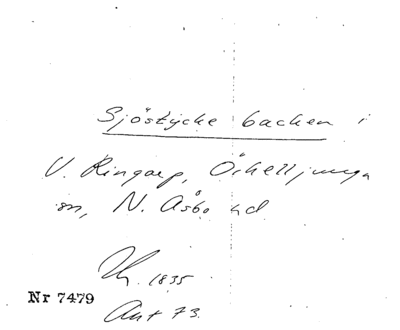 Sjöstycke backen i
V. Ringarp, Örkelljunga
sn, N. Åsbo hd
1835
Nr 7479
Ant 73.